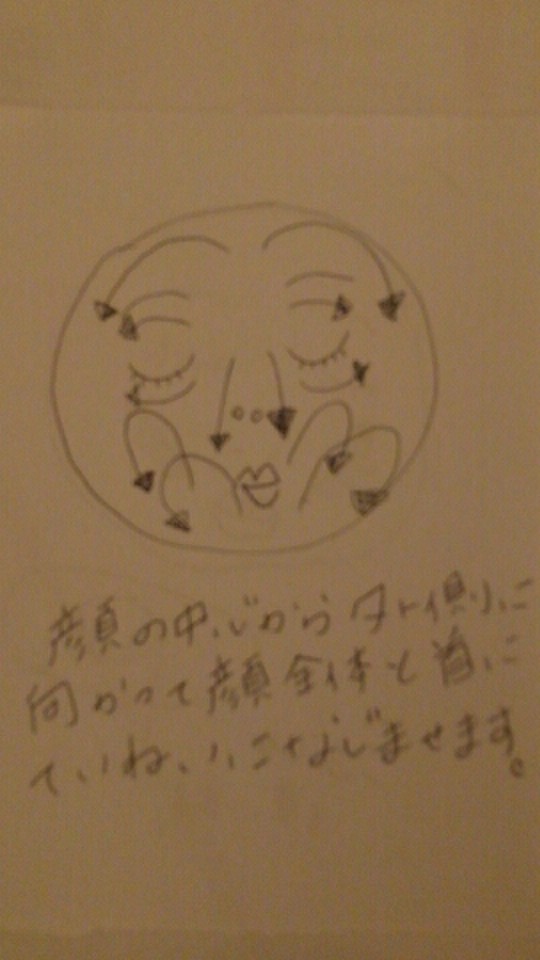 顔の中心から外側に
向かって顔全体と首に
ていねいになじませます。